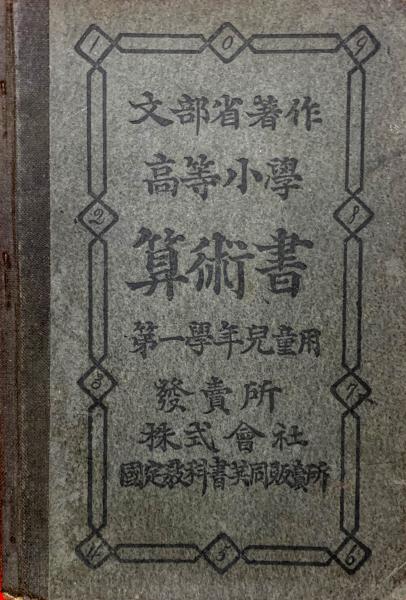 1 0 9
文部省著作
高等小學
2 8
算術書
第一學年兒童用
3 7
發賣所
株式會社
國定敎科書共同販賣所
4 5 6